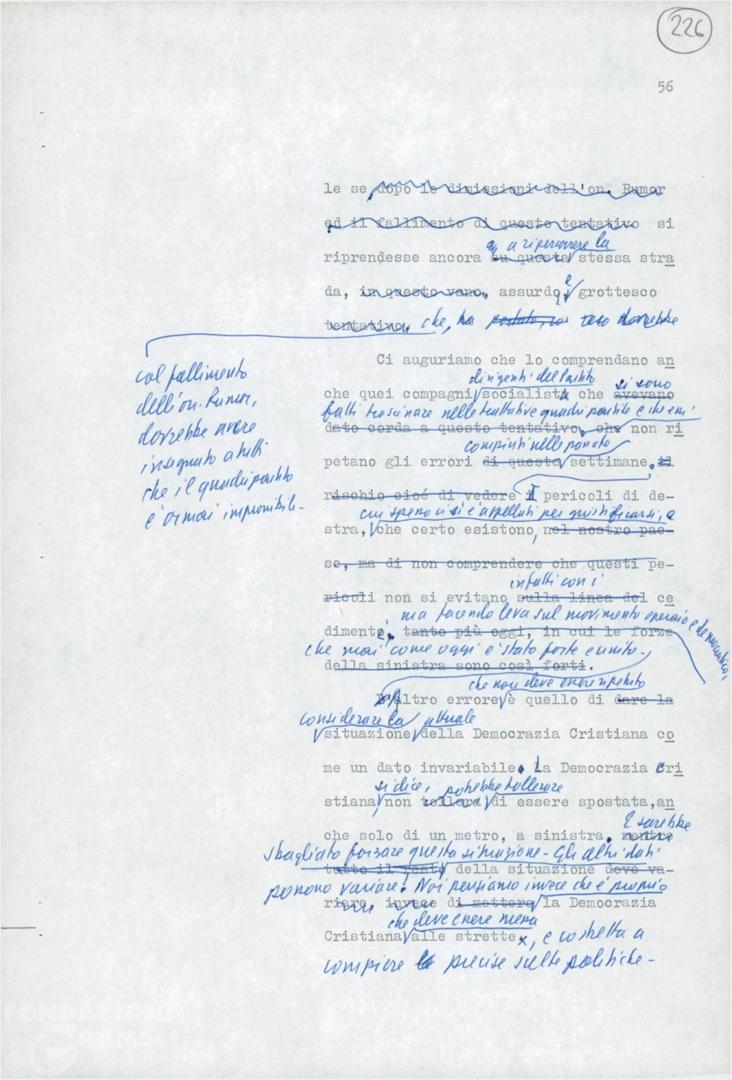 226
56
le se dopo le dimissioni dell'on. Rumor
ed il fallimento di questo tentativo si
a ripercorrere la
riprendesse ancora su questa stessa stra
da, in questo vano, assurdo e grottesco
tentativo, che, ha portato, non dovrebbe
col fallimento
dell'on. Rumor,
dovrebbe avere
insegnato a tutti
che il quadripartito
è ormai improponibile.
Ci auguriamo che lo comprendano an
dirigenti del Partito
che quei compagni socialisti che avevano
si sono
fatti trascinare nelle trattative quadripartite e che essi
dato corda a questo tentativo, che non ri
compiuti nelle passate
petano gli errori di questa settimane. Il
rischio cioé di vedere I pericoli di de-
cui spesso ci si è appellati per giustificarsi, e
stra, che certo esistono, nel nostro pae-
se, ma di non comprendere che questi pe-
infatti con i
ricoli non si evitano sulla linea del ce
ma facendo leva sul movimento operaio e democratico,
dimento, tanto più oggi, in cui le forze
che mai come oggi è stato forte e unito.
della sinistra sono così forti.
che non deve essere ripetuto
L'altro errore è quello di dare la
considerare la attuale
situazione della Democrazia Cristiana co
me un dato invariabile. La Democrazia Cri
si dice, potrebbe tollerare
stiana non tollera di essere spostata, an
che solo di un metro, a sinistra, mentre
E sarebbe
sbagliato forzare questa situazione. Gli altri dati
tutto il resto della situazione deve va-
possono variare. Noi pensiamo invece che è proprio
riare, invece di mettere la Democrazia
che deve essere messa
Cristiana alle strette, e costretta a
compiere precise scelte politiche.
FONDAZIONE
GRAMSCI